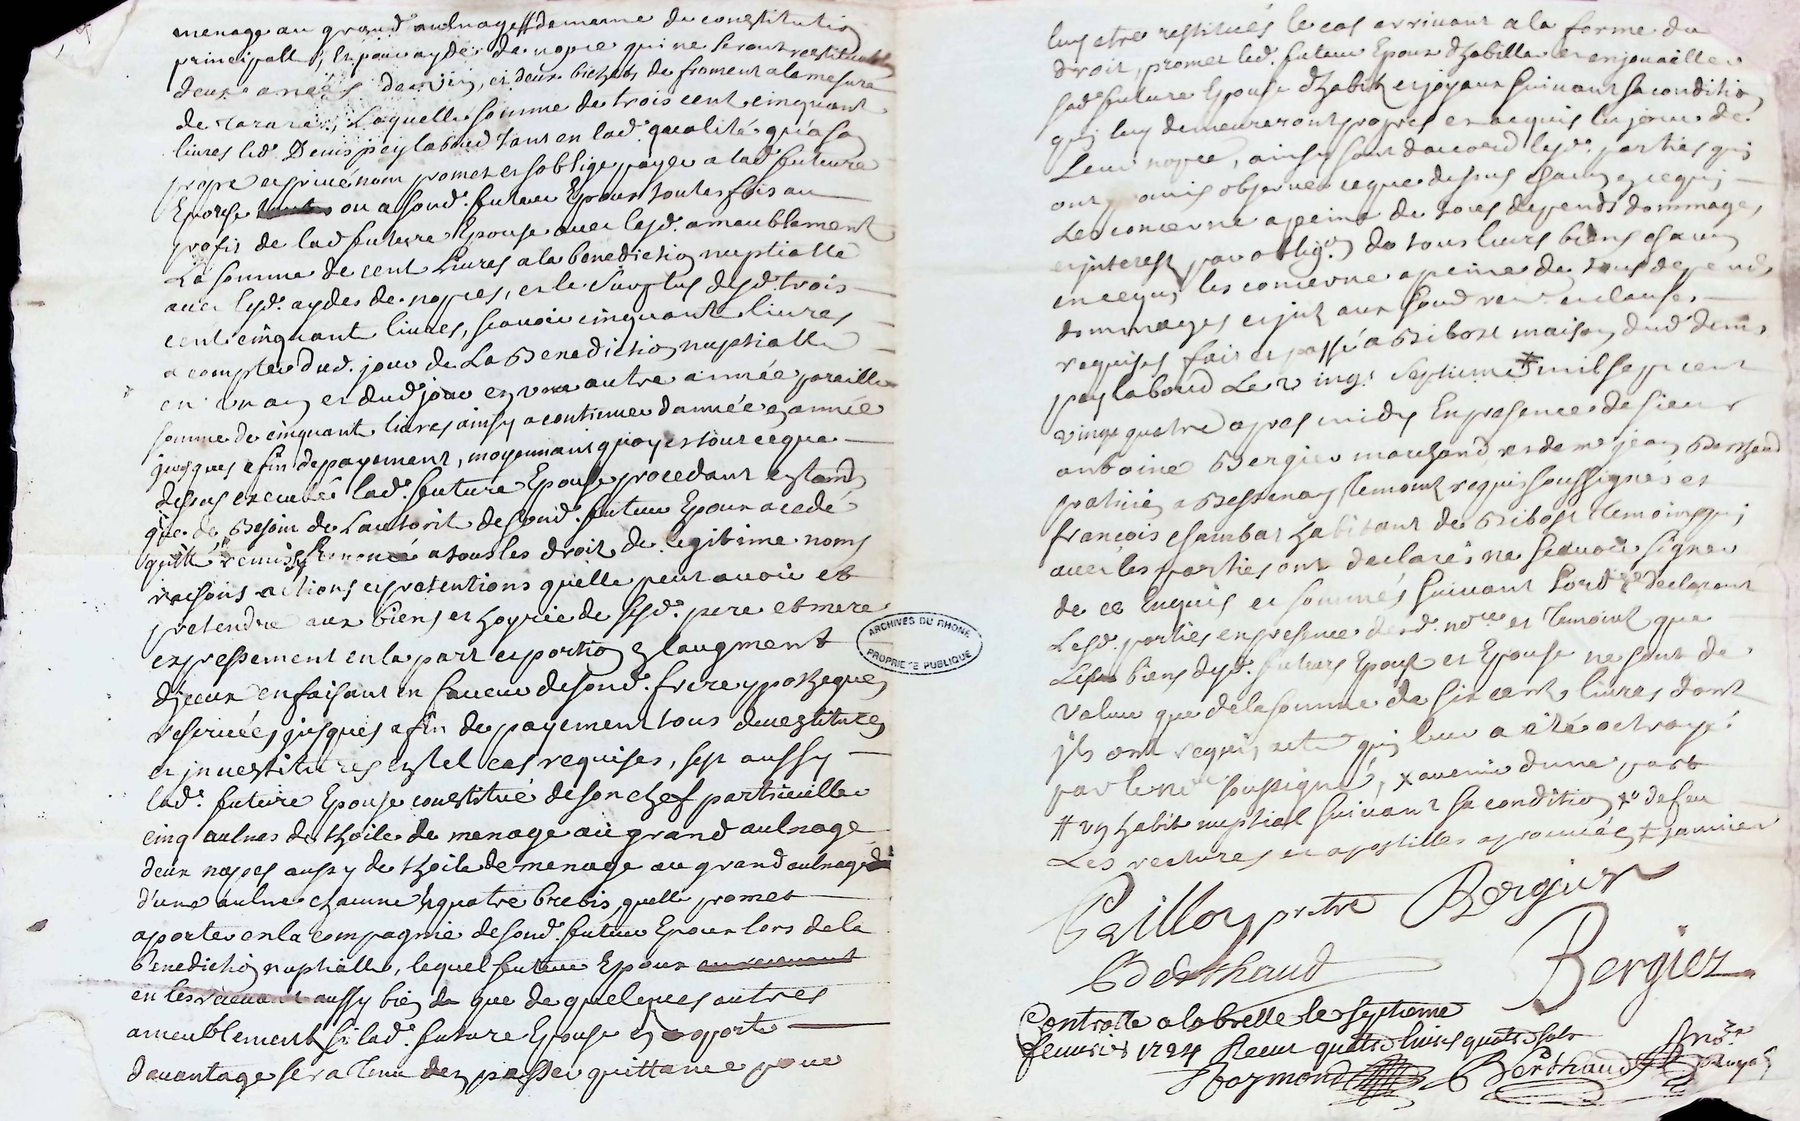 menage au grand aulnage # de meme de constitution
principalle, et pour ayder de nopce qui ne seront restituable
deux anées de vin, et deux bichets de froment a la mesure
de Tarare, Laquelle somme de trois cent cinquant
livres led. Denis peylaboud tant en lad. qualité qu'a son
propre et privé nom promet et s'oblige payer a lad. future
Epouse ou a sond. futeur Epoux toutes fois au
profit de lad future Epouse avec lesd. ameublement
La somme de cent Livres a la benediction nuptialle
avec lesd. aydes de nopces, et le surplus desd. trois
cent cinquant livres, scavoir cinquant livres
a compter dud. jour de La Benediction nuptialle
en un an et dud jour en une autre année pareille
somme de cinquant livres ainsy a continuer d'année en année
jusques a fin de payement, moyennant quoy et tout ce que
dessus executé lad. future Epouse procedant en tand
que de Besoin de L'autorité de sond. futeur Epoux a cedé
quitté remis et Renoncé a tous les droit de legitime noms
raisons actions et pretentions quelle peut avoir et
pretendre aux biens et hoyrie de sesd. pere et mere
expressement en la part et portion en laugment
d'yceux en faisant en faveur de sond. frere ypotheque
reservée jusques a fin de payement sous devestiture
et jnvestitures en tel cas requises, sest aussy
lad. future Epouse constitué de son chef particulier
cinq aulnes de thoile de menage au grand aulnage
deux napes aussy de thoile de menage au grand aulnage
d'une aulne chacune et quatre brebis quelle promet
aporter en la compagnie de sond. futeur Epoux lors de la
Benediction nuptialle, lequel futeur Epoux en recevant
en les recevant aussy bien que de quelques autres
ameublements si lad. future Epouse en aporte
davantage sera tenu den passer quittance pour
luy etre restitués le cas arrivant a la forme du
droit, promet led. futeur Epoux d'habiller et enjoailler
sad. future Epouse d'habits et joyaux suivant sa condition
qui luy demeureront propres et acquis le jour de
Leur nopce, ainsy sont d'accord lesd. parties qui
ont promis observer ce que dessus chacun en ce qui
Les concerne a peine de tous depends dommages
et jnterest par oblign. de tous leurs biens chacun
en ce qui les concerne a peine de tous depends
dommages et jnt aux soud renon. et clauses
requises fait et passé a Bibost maison dud Denis
peylaboud Le vingt septieme # mil sept cent
vingt quatre apres midy En presence de sieur
antoine Bergier marchand et de me jean Berthaud
praticien a Bessenay temoins requis soussignés et
françois chambas habitant de Bibost temoin qui
avec les parties ont declaré ne scavoir signer
de ce Enquis et sommés suivant Lord. et declarant
Lesd. parties en presence desd. nore et Temoins que
Les biens desd. futeurs Epoux et Epouse ne sont de
valeur que de la somme de six cents livres dont
jls ont requis acte qui leur a été octroyé
par le nore soussigné, x avenir d'une part
# un habit nuptial suivant sa condition xo de feu
Les ratures et apostilles aprouvées # janvier
Pailloy pretre Bergier
Berthaud Bergier
Controlle a la brelle le septieme
fevrier 1724 Receu quatre livres quatre sols
Raymond Berthaud
ARCHIVES DU RHONE
PROPRIETE PUBLIQUE